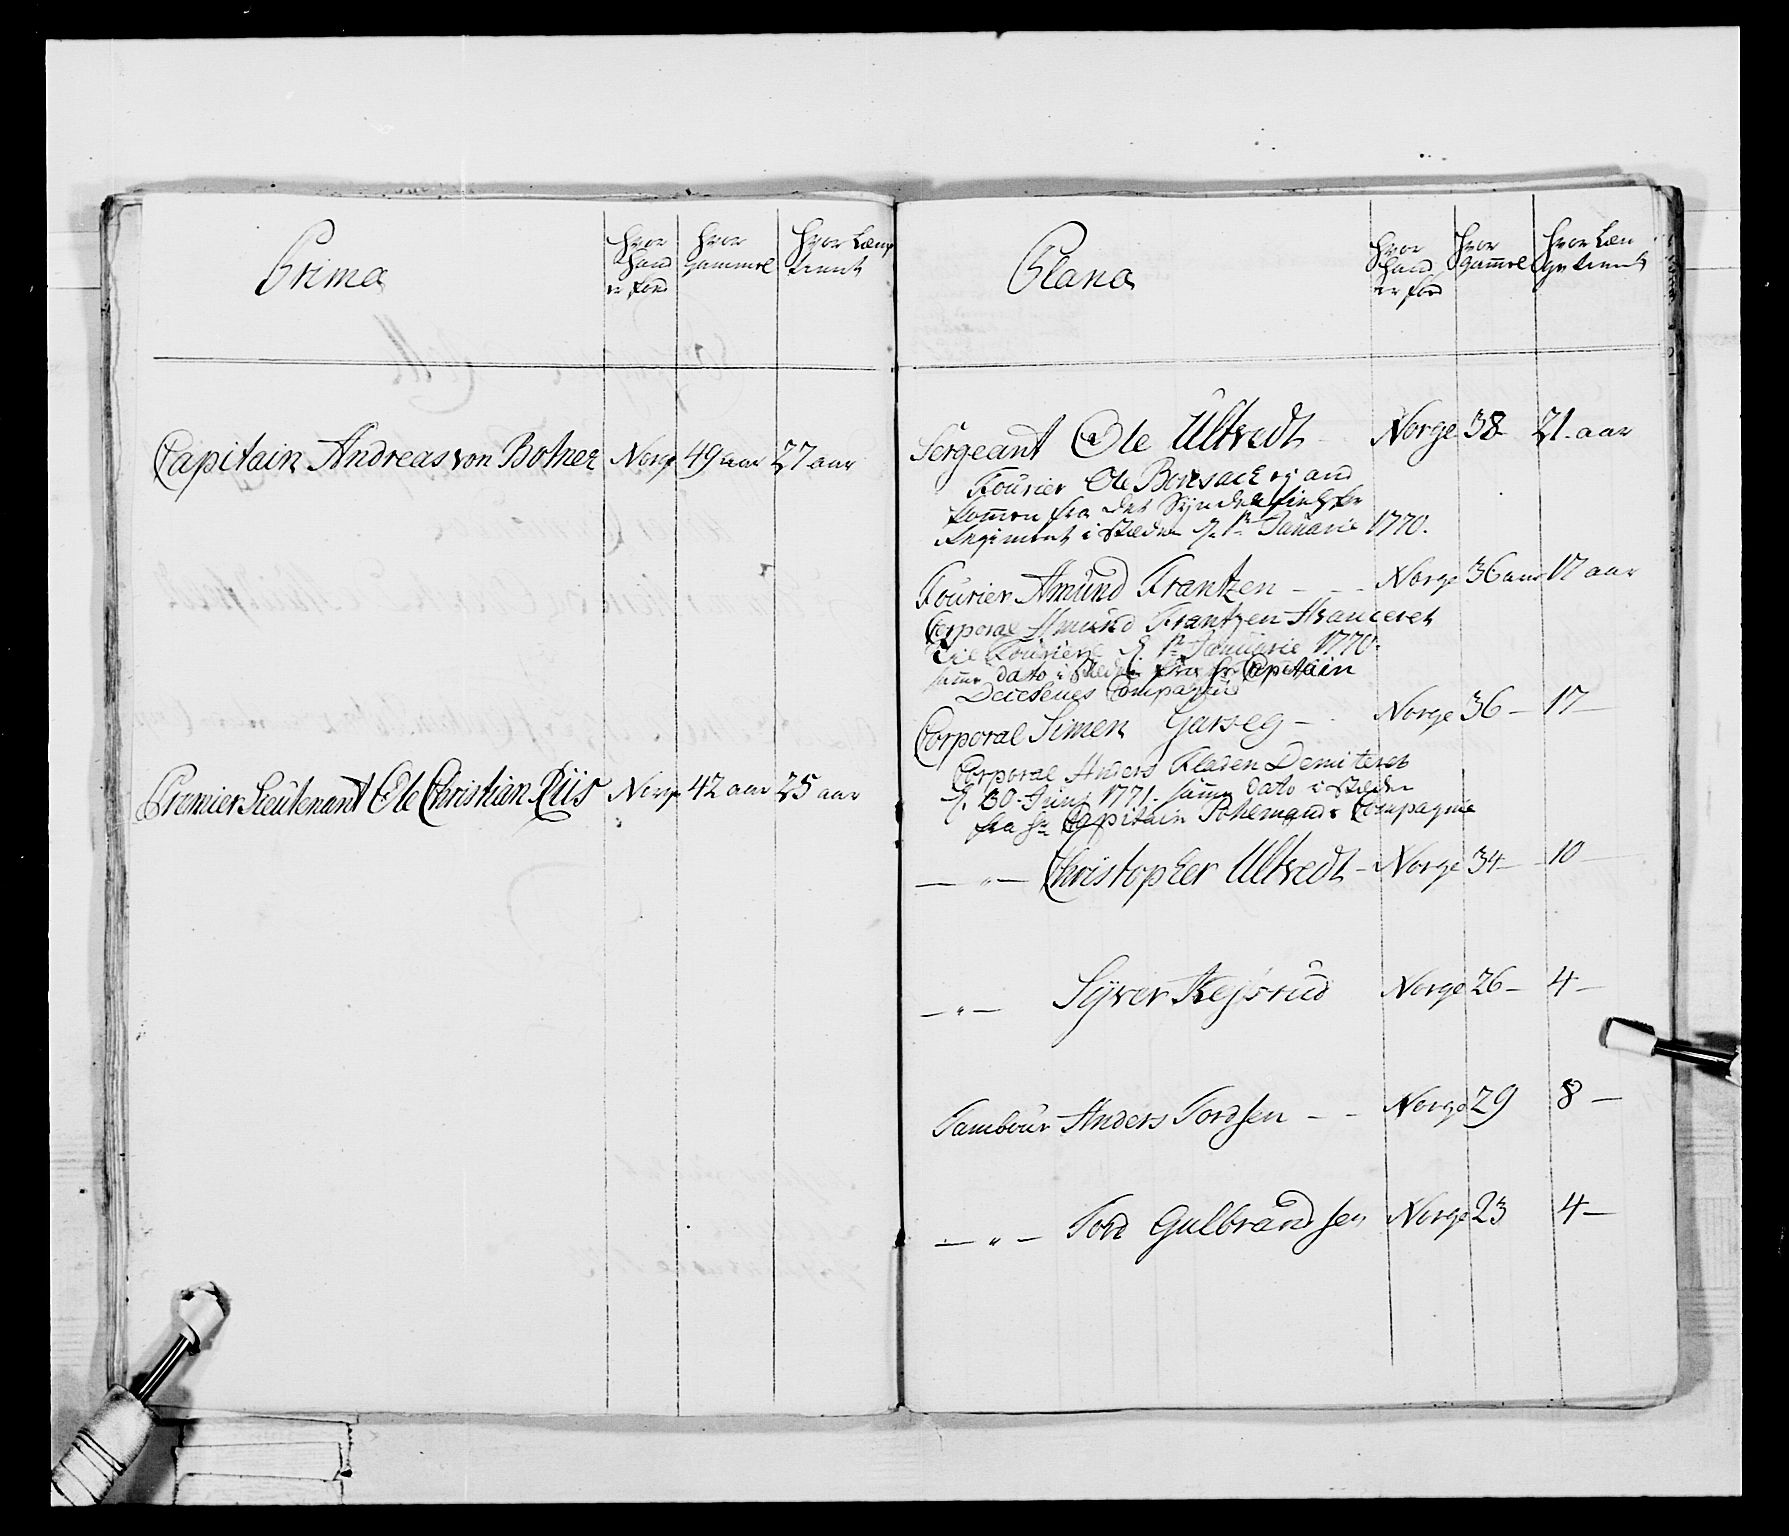 Prima
Hvor hand er fød
Hvor gammel
Hvor Længe tient
Capitain Andreas von Botner Norge 49 aar 27 aar
Premier Lieutenant Ole Christian Riis Norge 42 aar 25 aar
Plana
Hvor hand er fød
Hvor gammel
Hvor Længe tient
Sergeant Ole Ultvedt Norge 38 21 aar
Fourier Ole Bonsach
kommen fra det Syndenfieldske
Regiment i stæden d. 1te Januarie 1770.
Fourier Amund Frantzen - - Norge 36 aar 17 aar
Corporal Amund Frantzen Avanceret
til Fourier d. 1te Januarie 1770.
samme dato i stæden fra Hr Capitain
Compagnie
Corporal Simen Garseg - Norge 36 - 17 -
Corporal Anders Fladen Demiteret
d. 30 Juni 1771. samme dato i stæden
fra Hr Capitain Compagnie
— " — Christopher Ultvedt - Norge 34 - 10 -
— " — Syver Kejsrud Norge 26 - 4 -
Tambour Anders Tordsen - - Norge 29 8 -
— " — Tord Gulbrandsen Norge 23 4 -